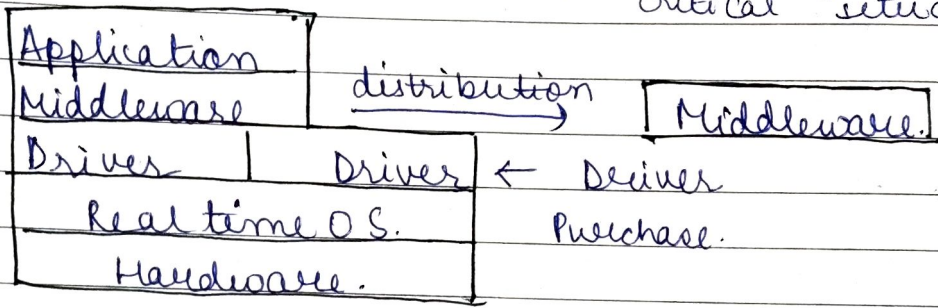 critical
Application
Middleware distribution Middleware.
Driver Driver ← Driver
Real time OS. Purchase.
Hardware.